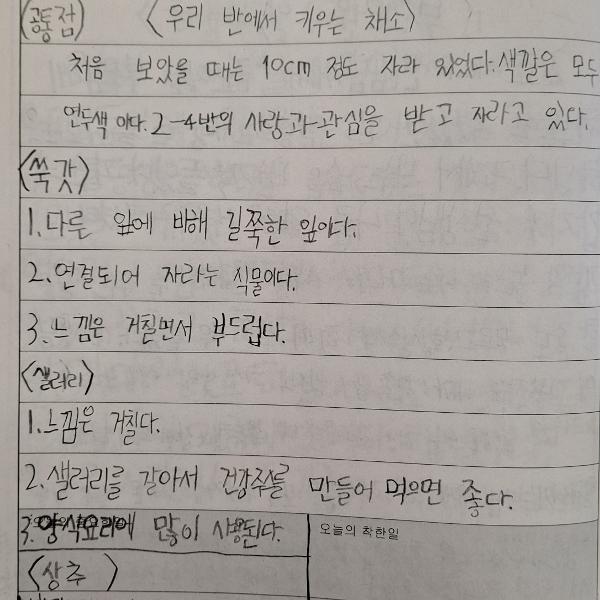 (공통점) 〈우리 반에서 키우는 채소〉
처음 보았을 때는 10cm 정도 자라 있었다. 색깔은 모두
연두색 이다. 2-4반의 사랑과 관심을 받고 자라고 있다.
〈쑥갓〉
1. 다른 잎에 비해 길쭉한 잎이다.
2. 연결되어 자라는 식물이다.
3. 느낌은 거칠면서 부드럽다.
〈샐러리〉
1. 느낌은 거칠다.
2. 샐러리를 갈아서 건강주스를 만들어 먹으면 좋다.
3. 양식요리에 많이 사용된다.
오늘의 착한일
〈상추〉